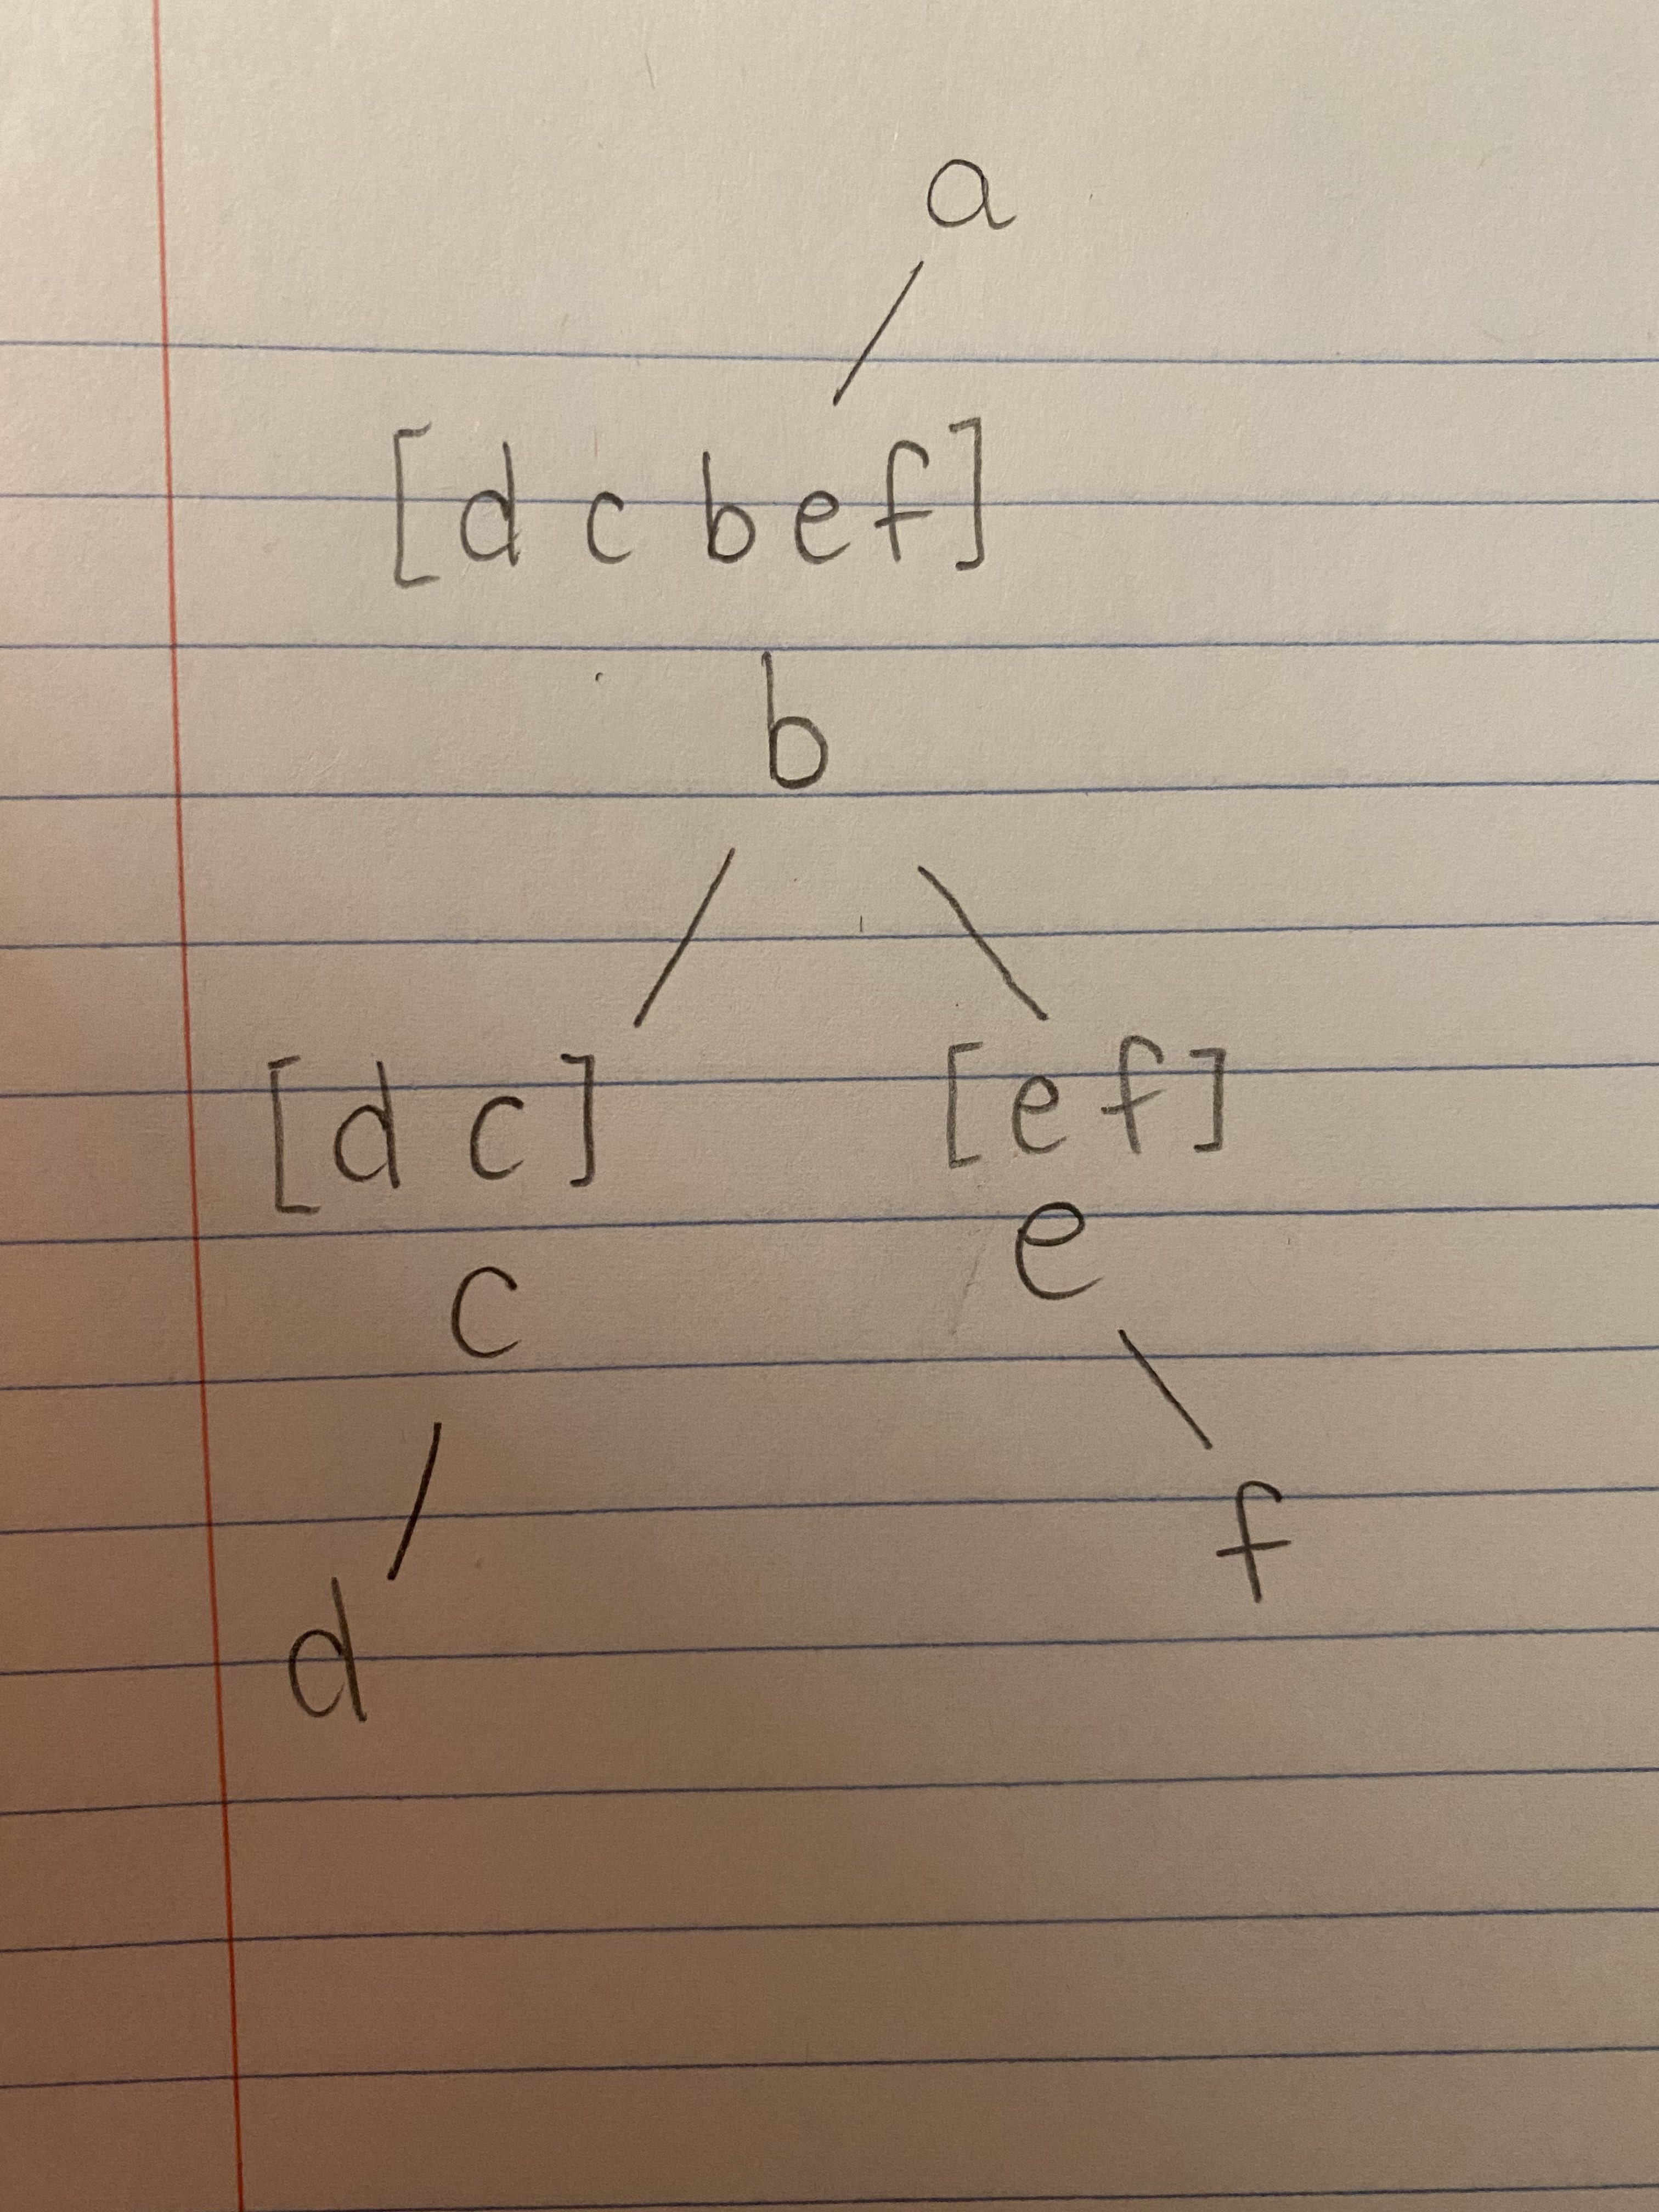 a
[d c b e f]
b
[d c] [e f]
c e
d f